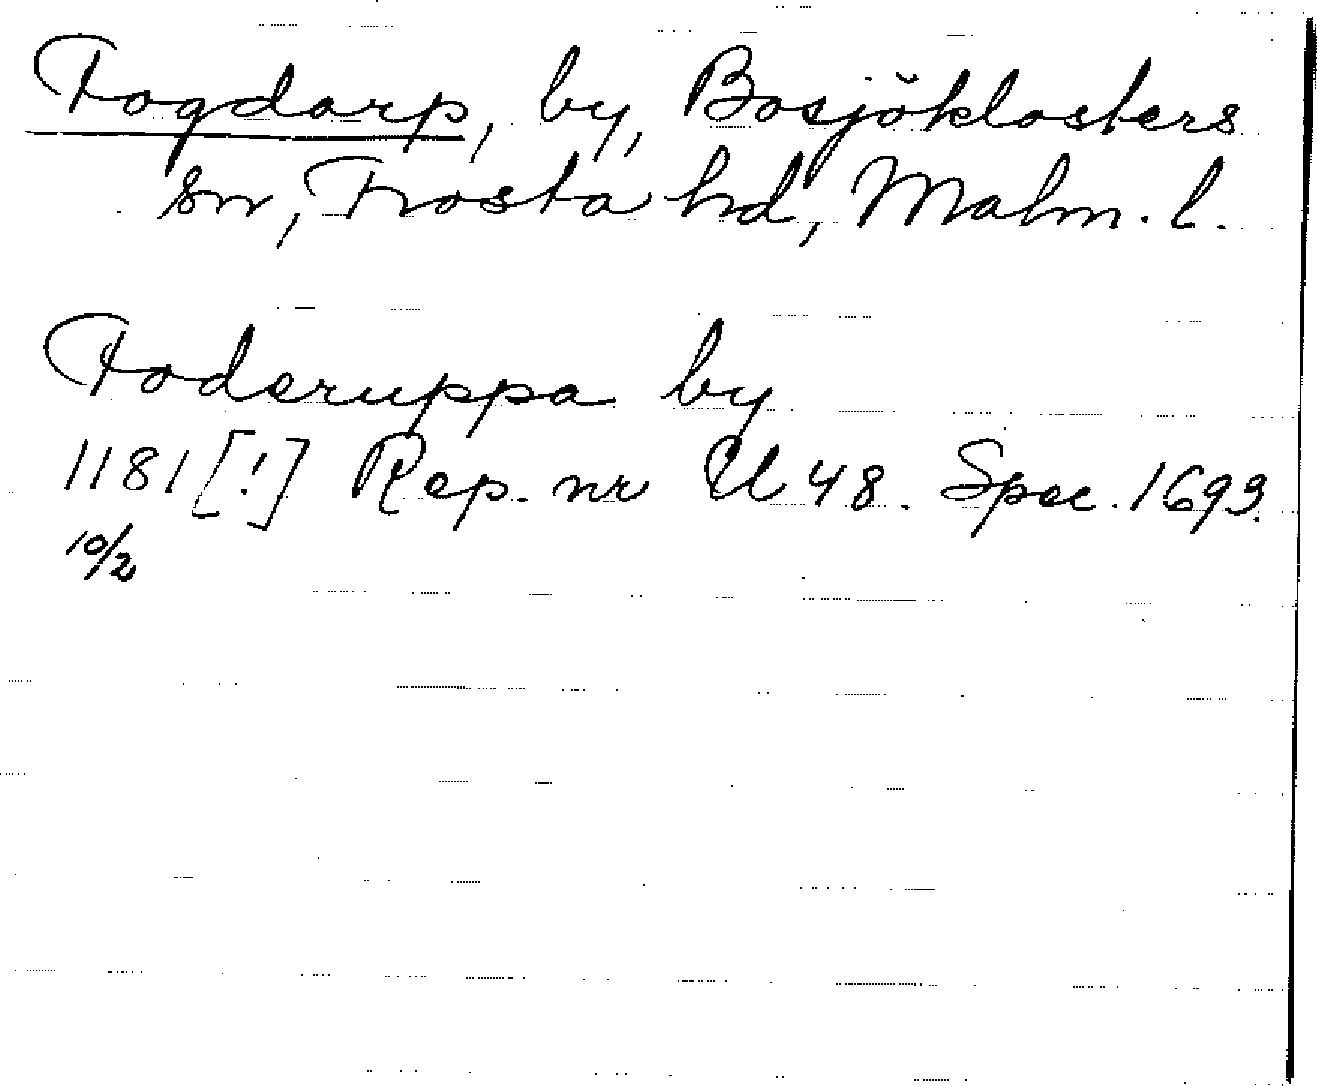 Fogdarp, by, Bosjöklosters
sn, Frosta hd, Malm. l.
Foderuppa by
1181 [!] Rep. nr U 48. Spec. 1693.
10/2